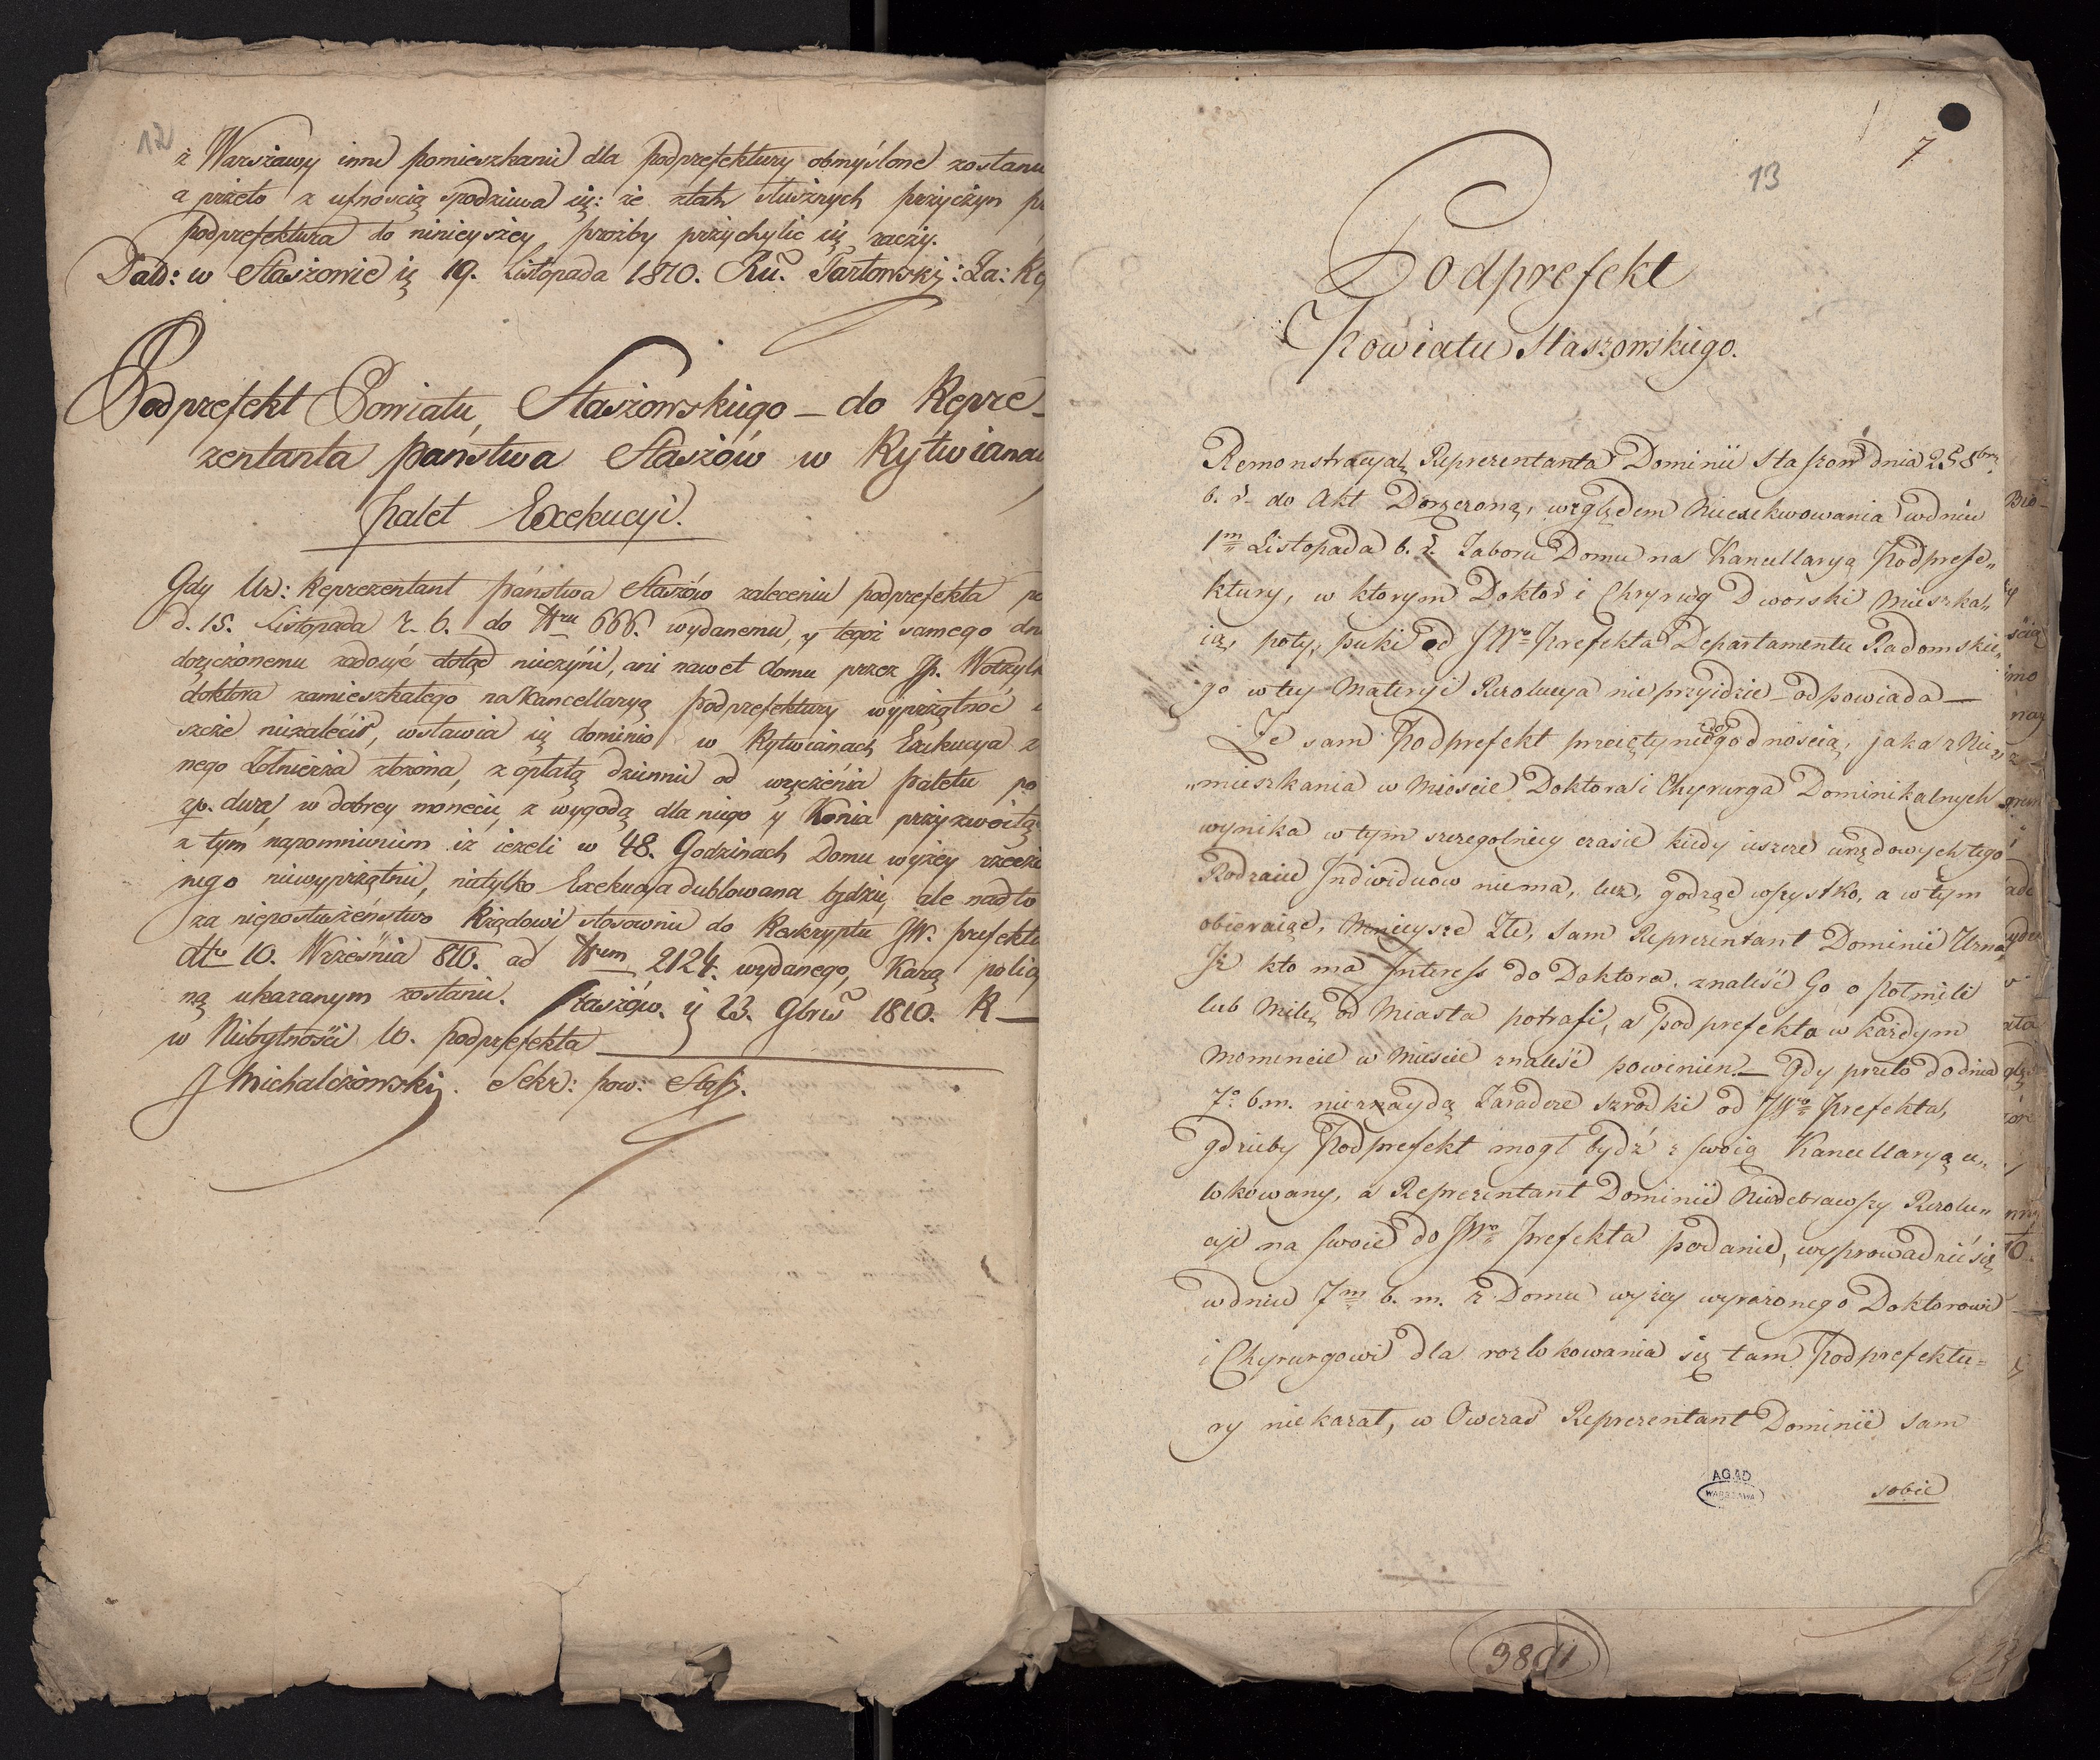 12
z Warszawy inne pomieszkanie dla podprefektury obmyślone zostanie
a przeto z ufnością spodziewa się: że ztak słusznych przyczyn
podprefektura do ninieyszey prozby przychylic się raczy.
Datt: w Staszowie ię 19. Listopada 1810. Tarłowski: Za:
Podprefekt Powiatu Staszowskiego – do Repre-
zentanta państwa Staszów w Rytwianach
palet Exekucyi.
Gdy Ur: Reprezentant państwa Staszów zaleceniu podprefekta
d. 15. Listopada r. b. do Nru 666. wydanemu, y tegoż samego
doręczonemu zadosyć dotąd nieczyni, ani nawet domu przez JP.
doktora zamieszkałego na Kancellaryą podprefektury wyprzątnoć
szcze niezalecił, wstawia się dominio w Rytwianach Exekucya z
nego Zołnierza złożona, z opłatą dziennie od wręczenia paletu po
zp. dwa, w dobrey monecie, z wygodą dla niego y Konia przyzwoitą
z tym napomnieniem iż ieżeli w 48. Godzinach Domu wyżey rzeczo
nego niewyprzątnie, nietylko Exekucya dublowana będzie, ale nadto
za nieposłuszeństwo Rządowi stosownie do Reskryptu JW. prefekta
dtto 10. Września 810. ad Nrum 2124. wydanego, Karą policy
ną ukaranym zostanie. Staszów. ię 23. 9bris 1810. R—
w Niebytności W. podprefekta
J Michalczowski. Sekr: pow: Stasz.
7
13
Podprefekt
Powiatu Staszowskiego.
Remonstracyą Reprezentanta Dominii Staszow dnia 25 8bra
b. r. do Akt Doręczoną, względem Nieexekwowania wdniu
1m Listopada b. r. Zaboru Domu na Kancellaryą Podprefe„
ktury, w ktorym Doktor i Chyrurg Dworski Mieszka„
ią, poty, puki od JWo Prefekta Departamentu Radomskie„
go w tey Materyi Rezolucya nie przyidzie – odpowiada —
Że sam Podprefekt przeięty niedogodnoscią, jaka z Nie„
„mieszkania w Miescie Doktora i Chyrurga Dominikalnych
wynika w tym szczegolniey czasie kiedy ieszcze urzędowych tego
Rodzaiu Individuow niema, lecz, godząc wszystko, a w tym
obieraiąc, Mnieysze Złe, sam Reprezentant Dominii Uzna,
Iż kto ma Interess do Doktora, znaleść Go o pół mili
lub Milę od Miasta potrafi, a podprefekta w każdym
momencie w Miescie znaleść powinien — Gdy przeto do dnia
7o b.m. nieznaydą Zaradcze szrodki od JWo Prefekta,
gdzieby Podprefekt mogł bydź z swoią Kancellaryą u„
lokowany, a Reprezentant Dominii Nieodebrawszy Rezolu„
cyi na swoie do JWo Prefekta podanie, wyprowadzić się
w dniu 7m b. m. z Domu wyżey wyrażonego Doktorowi
i Chyrurgowi dla rozlokowania się tam Podprefektu=
ry niekazał, w Owczas Reprezentant Dominii sam
sobie
AGAD
WARSZAWA